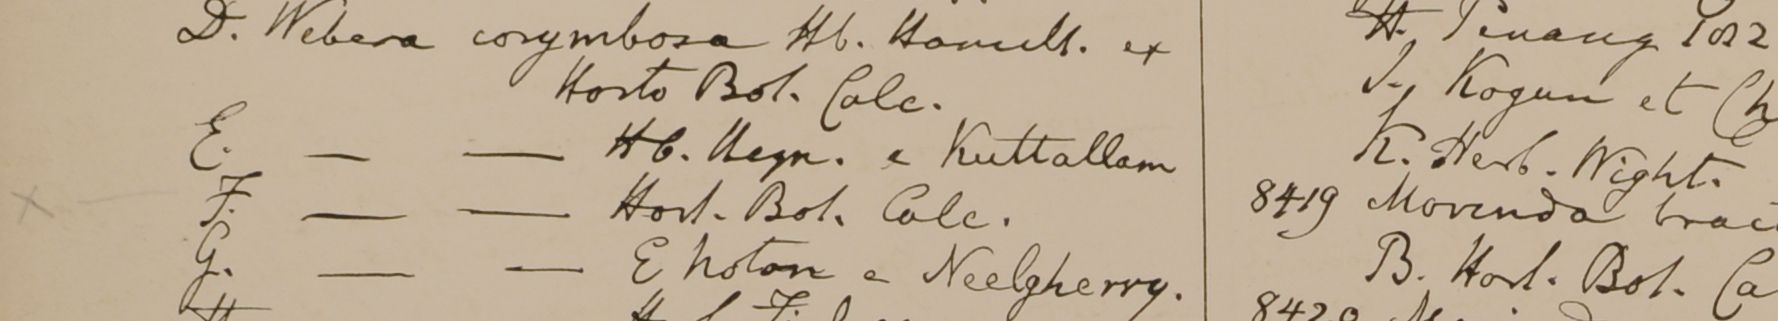 D. Webera corymbosa Hb. Hamilt. ex
Horto Bot. Calc.
E. — — Hb. Heyn. e Kuttallam
F. — — Hort. Bot. Calc.
G. — — E notan e Neelgherry.
H. Penang 1822
J. et
K. Herb. Wight.
8419 Morinda bract
B. Hort. Bot. Ca
8420